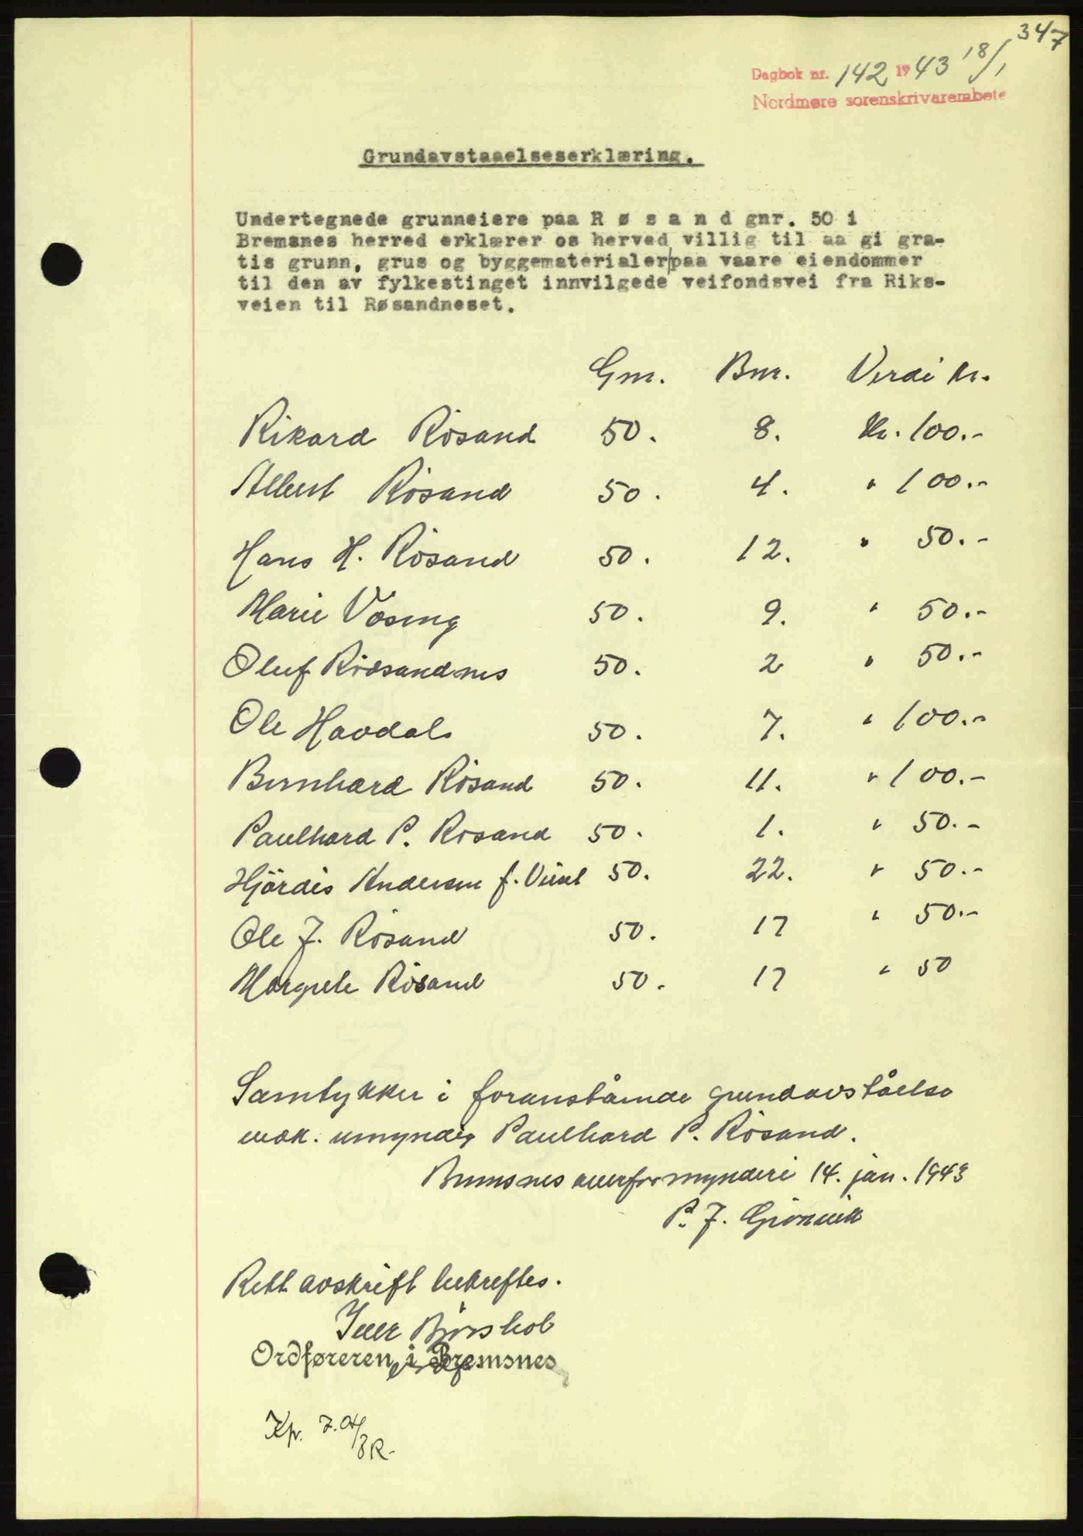 347
Dagbok nr. 142 1943 18/1
Nordmøre sorenskrivarembete
Grundavstaaelseserklæring.
Undertegnede grunneiere paa R ø s a n d gnr. 50 i
Bremsnes herred erklærer os herved villig til aa gi gra-
tis grunn, grus og byggematerialer paa vaare eiendommer
til den av fylkestinget innvilgede veifondsvei fra Riks-
veien til Røsandneset.
Gnr. Bnr. Verdi kr.
Rikard Rösand 50. 8. kr. 100.-
Albert Rösand 50. 4. " 100.-
Hans H. Rösand 50. 12. " 50.-
Marie Vösing 50. 9. " 50.-
Oluf Rösandnes 50. 2 " 50.-
Ole Havdal 50. 7. " 100.-
Bernhard Rösand 50. 11. " 100.-
Paulhard P. Rösand 50. 1. " 50.-
Hjördis Andersen f. 50. 22. " 50.-
Ole J. Rösand 50. 17 " 50.-
Margrete Rösand 50. 17 " 50
Samtykker i foranstående grundavståelse
vedk. umyndig Paulhard P. Rösand.
Bremsnes overformynderi 14. jan. 1943
P. J.
Rett avskrift bekreftes.
Iver
Ordføreren i Bremsnes
Kr.